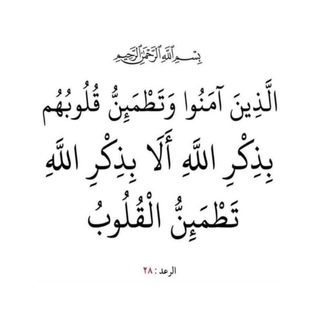 بِسْمِ اللَّهِ الرَّحْمَنِ الرَّحِيمِ
الَّذِينَ آمَنُوا وَتَطْمَئِنُّ قُلُوبُهُم
بِذِكْرِ اللَّهِ أَلَا بِذِكْرِ اللَّهِ
تَطْمَئِنُّ الْقُلُوبُ
الرعد : ٢٨